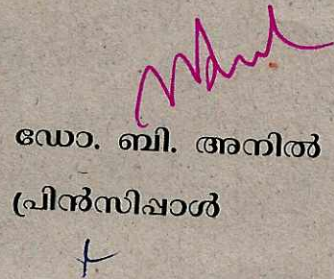 ഡോ. ബി. അനിൽ
പ്രിൻസിപ്പാൾ